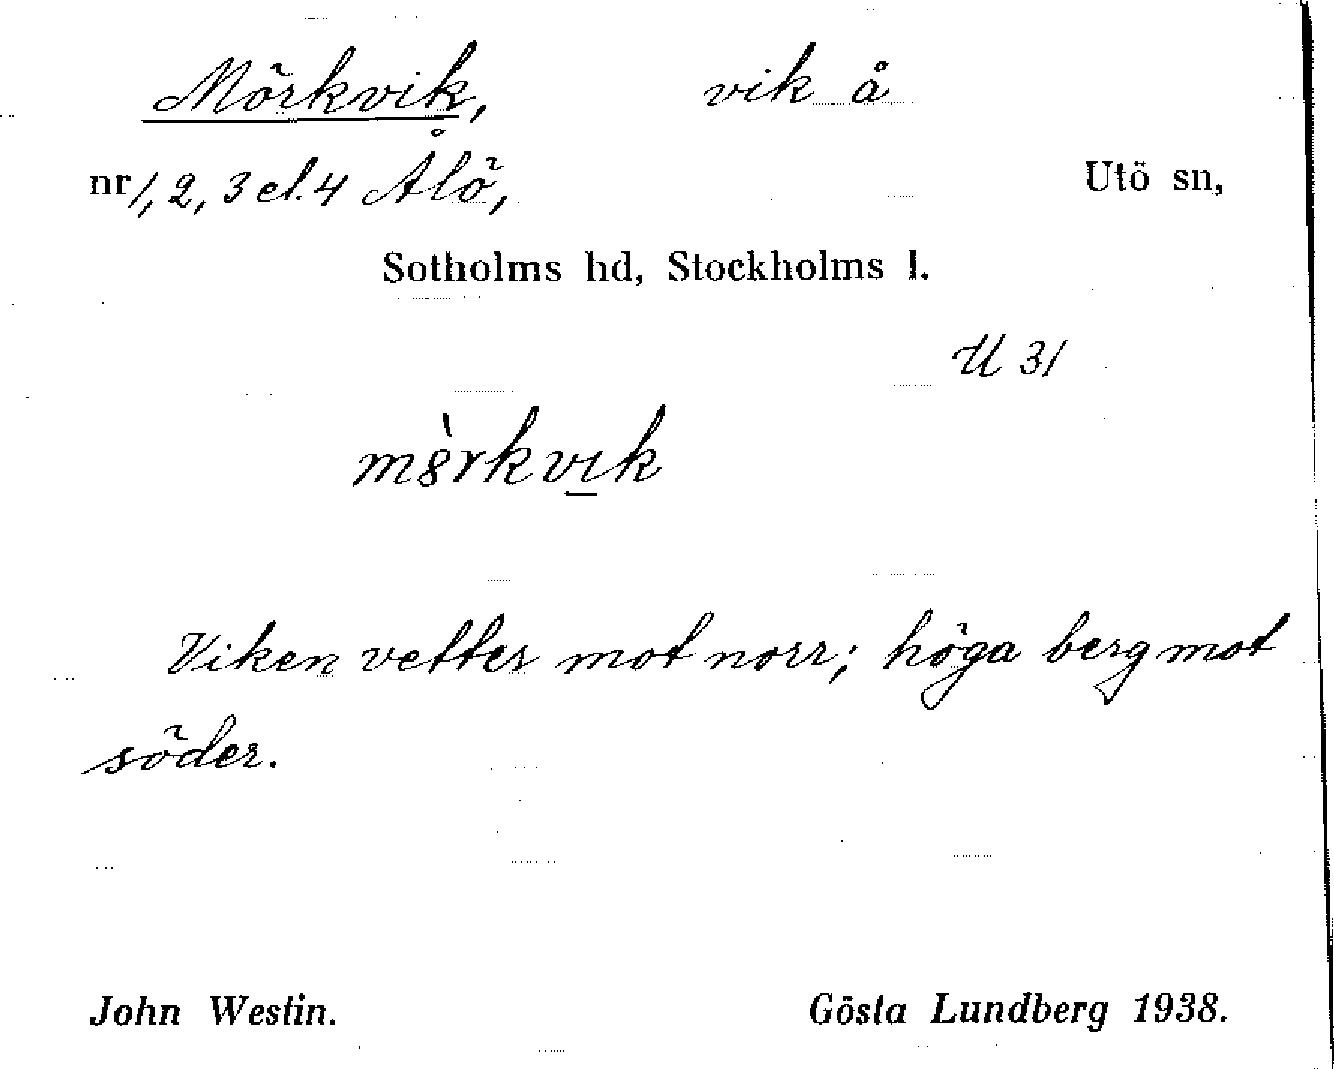 Mörkvik, vik å
nr 1, 2, 3 el. 4 Ålö, Utö sn,
Sotholms hd, Stockholms l.
U 31
m8̀rkvı̲k
Viken vetter mot norr; höga berg mot
söder.
John Westin. Gösta Lundberg 1938.